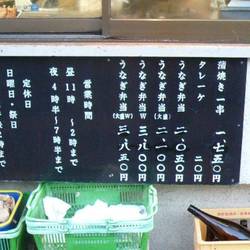 蒲焼き一串 一七五〇円
タレ一ケ 二〇円
うなぎ弁当 二〇五〇円
うなぎ弁当(大盛) 二一〇〇円
うなぎ弁当W 三八〇〇円
うなぎ弁当(大盛W) 三八五〇円
営業時間
昼11時〜2時まで
夜4時半〜7時半まで
定休日
日曜日・祭日